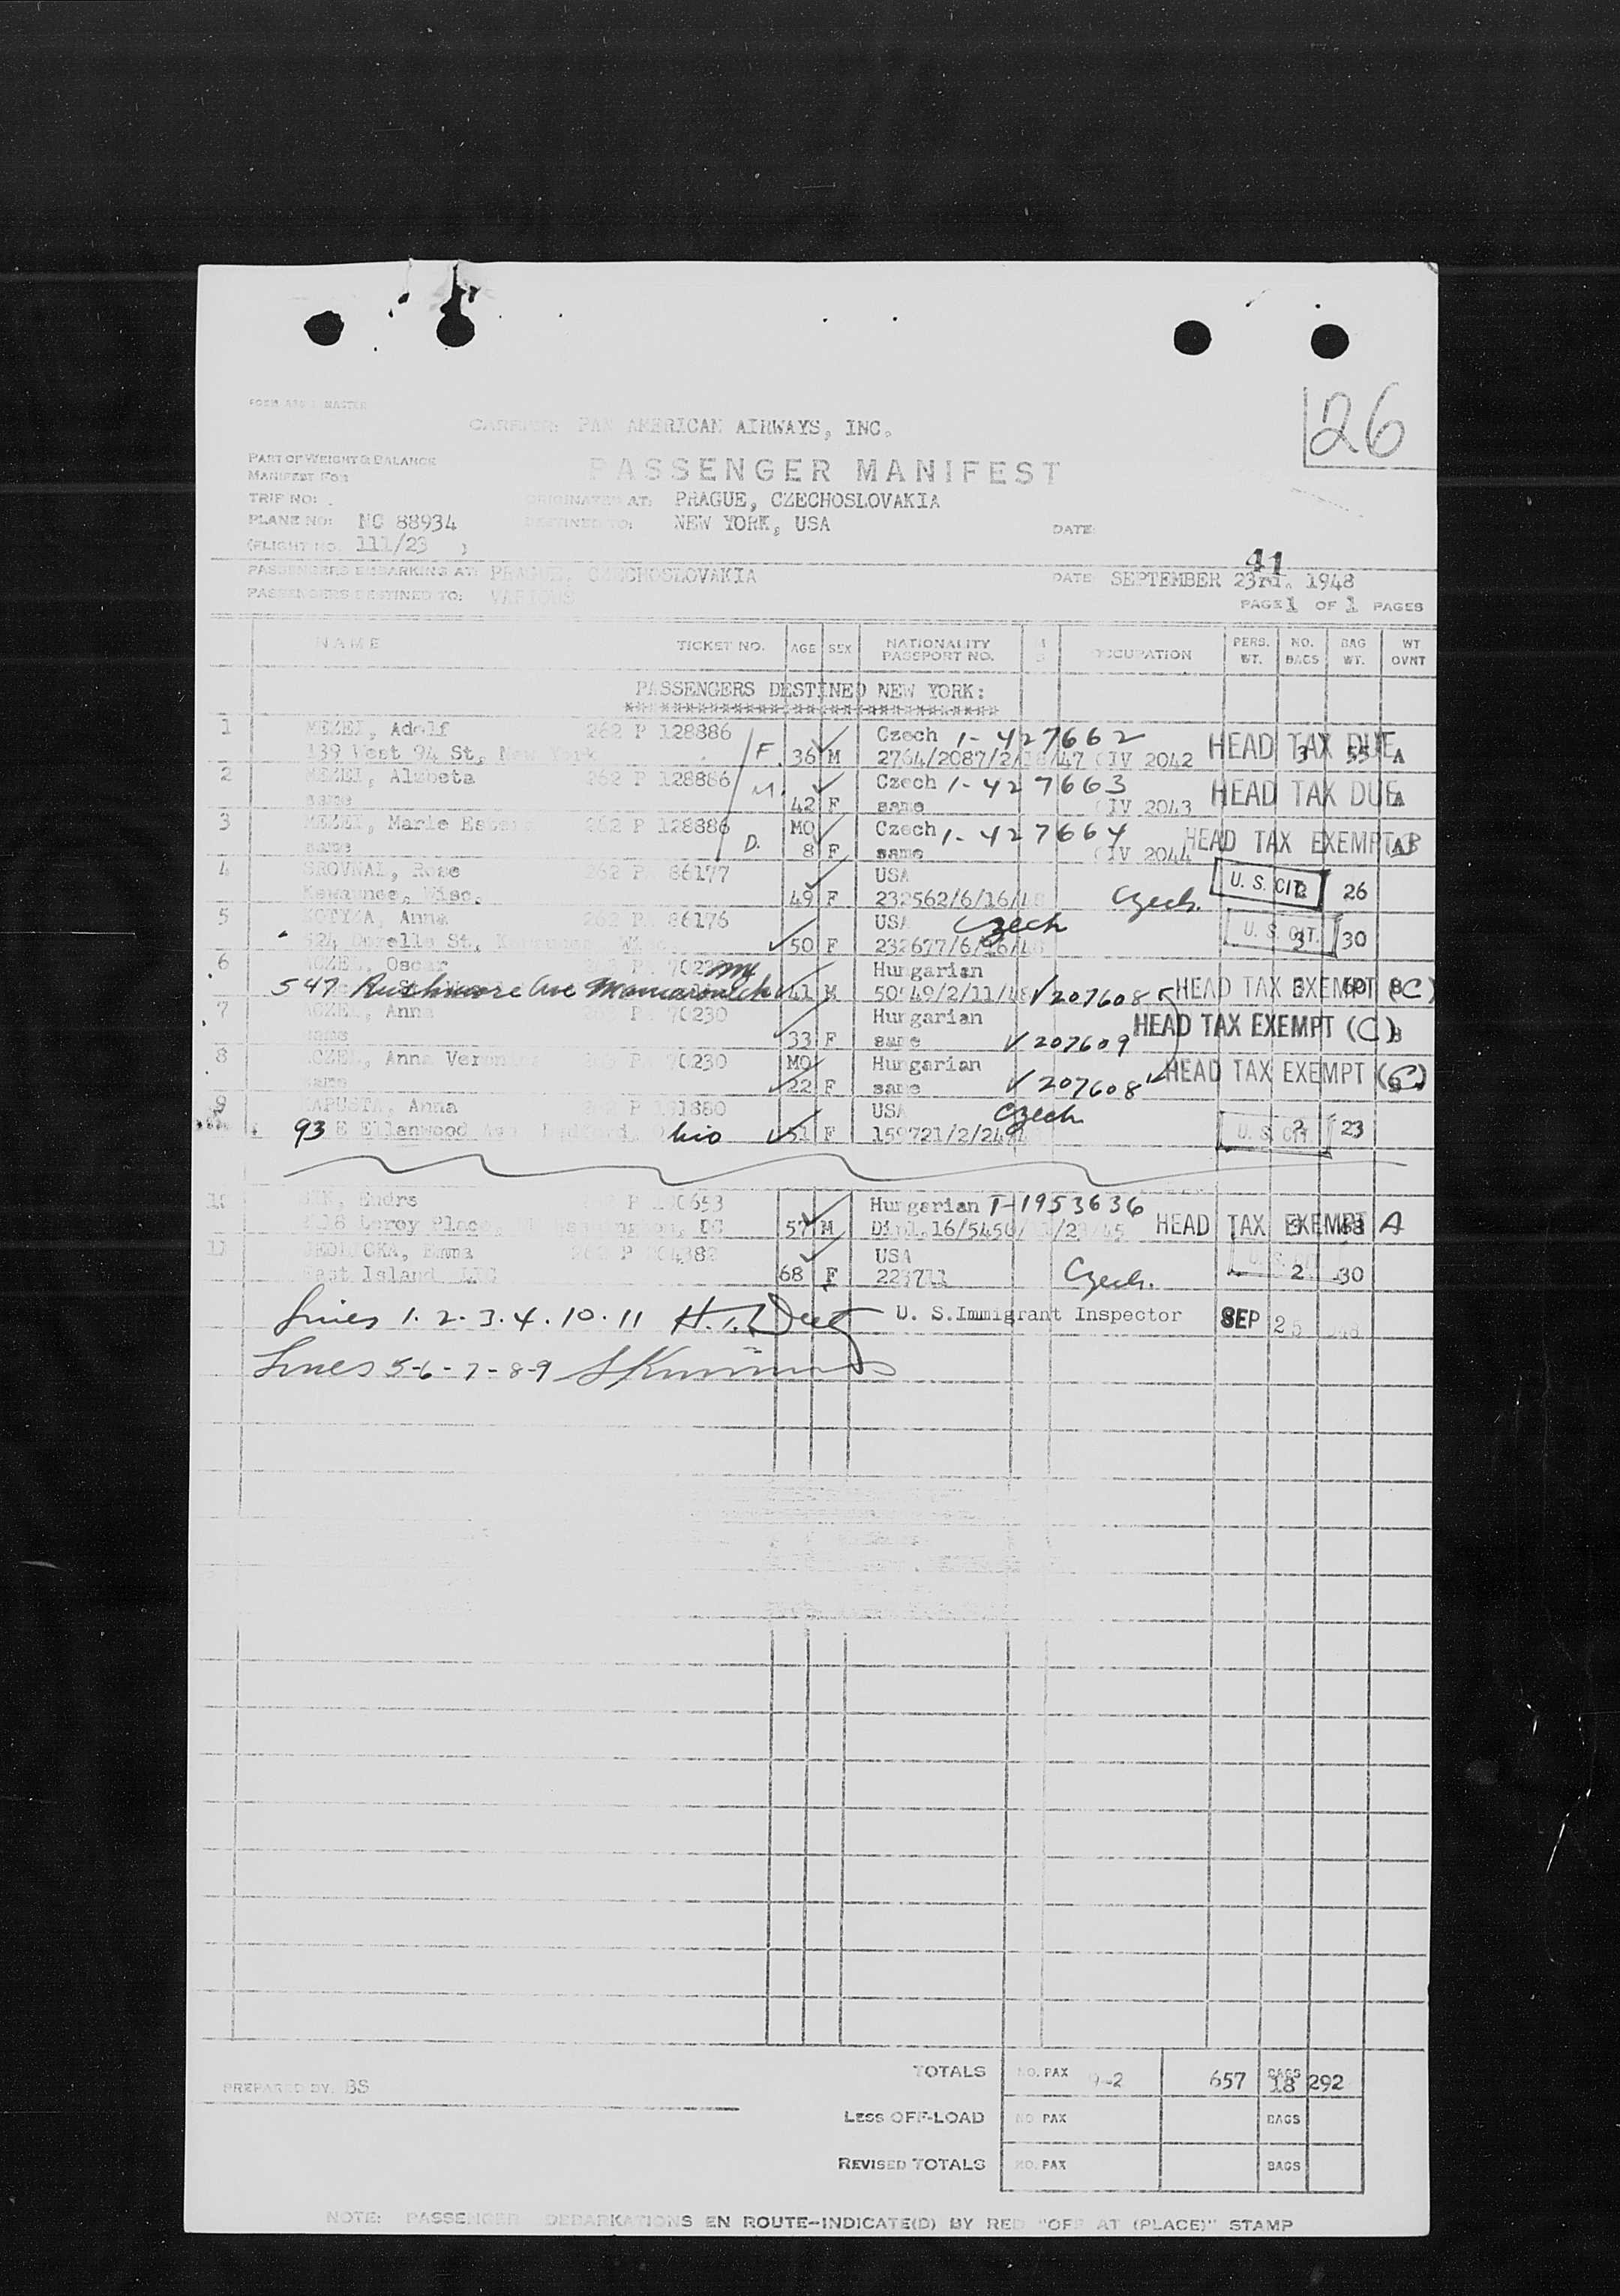 26
CARRIER: PAN AMERICAN AIRWAYS, INC.
PART OF WEIGHT & BALANCE
MANIFEST FOR
PASSENGER MANIFEST
TRIP NO:
ORIGINATED AT: PRAGUE, CZECHOSLOVAKIA
PLANE NO: NC 88934
DESTINED TO: NEW YORK, USA
DATE:
(FLIGHT NO. 111/23 )
41
PASSENGERS EMBARKING AT: PRAGUE, CZECHOSLOVAKIA
DATE: SEPTEMBER 23rd. 1948
PASSENGERS DESTINED TO: VARIOUS
PAGE 1 OF 1 PAGES
NAME TICKET NO. AGE SEX NATIONALITY PASSPORT NO. OCCUPATION PERS. WT. NO. BAGS BAG WT. WT OVNT
PASSENGERS DESTINED NEW YORK:
1 MEZEI, Adolf 262 P 128886 Czech 1-427662
139 West 94 St, New York F. 36 M 2764/2087/2/ /47 QIV 2042 HEAD TAX DUE 3 55 A
2 MEZEI, Alzbeta 262 P 128886 M. Czech 1-427663
same 42 F same QIV 2043 HEAD TAX DUE A
3 MEZEI, Marie 262 P 128886 MO Czech 1-427664
same D. 8 F same QIV 2044 HEAD TAX EXEMPT
4 SROVNAL, Rose 262 PA 86177 USA
Kewaunee, Wisc. 49 F 232562/6/16/48 Czech. U. S. CIT. 26
5 KOTYZA, Anna 262 PA 86176 USA Czech
St, Kewaunee Wisc. 50 F 232677/6/16/48 U. S. CIT. 3 30
6 ACZEL, Oscar Hungarian
547 Rushmore Ave Mamaroneck NY 41 M /2/11/48 V207608 HEAD TAX EXEMPT (C)
7 ACZEL, Anna PA 70230 Hungarian
same 33 F same V 207609 HEAD TAX EXEMPT (C)
8 ACZEL, Anna PA 70230 MO Hungarian
same 22 F same V 207608 HEAD TAX EXEMPT (C)
9 KAPUSTA, Anna USA Czech
93 E Ellenwood Ave Bedford, Ohio 51 F 159721/2/24/ U. S. CIT. 2 23
10 Endre Hungarian T-1953636
Leroy Place, Washington, DC 57 M HEAD TAX EXEMPT A
11 JEDLICKA, Emma USA
East Island, LIC 68 F Czech. 2 30
Lines 1.2.3.4.10.11 U. S. Immigrant Inspector SEP 25 1948
Lines 5-6-7-8-9
TOTALS NO. PAX 9-2 657 BAGS 18 292
PREPARED BY: BS
LESS OFF-LOAD NO. PAX BAGS
REVISED TOTALS NO. PAX BAGS
NOTE: PASSENGER DEBARKATIONS EN ROUTE-INDICATE(D) BY RED "OFF AT (PLACE)" STAMP